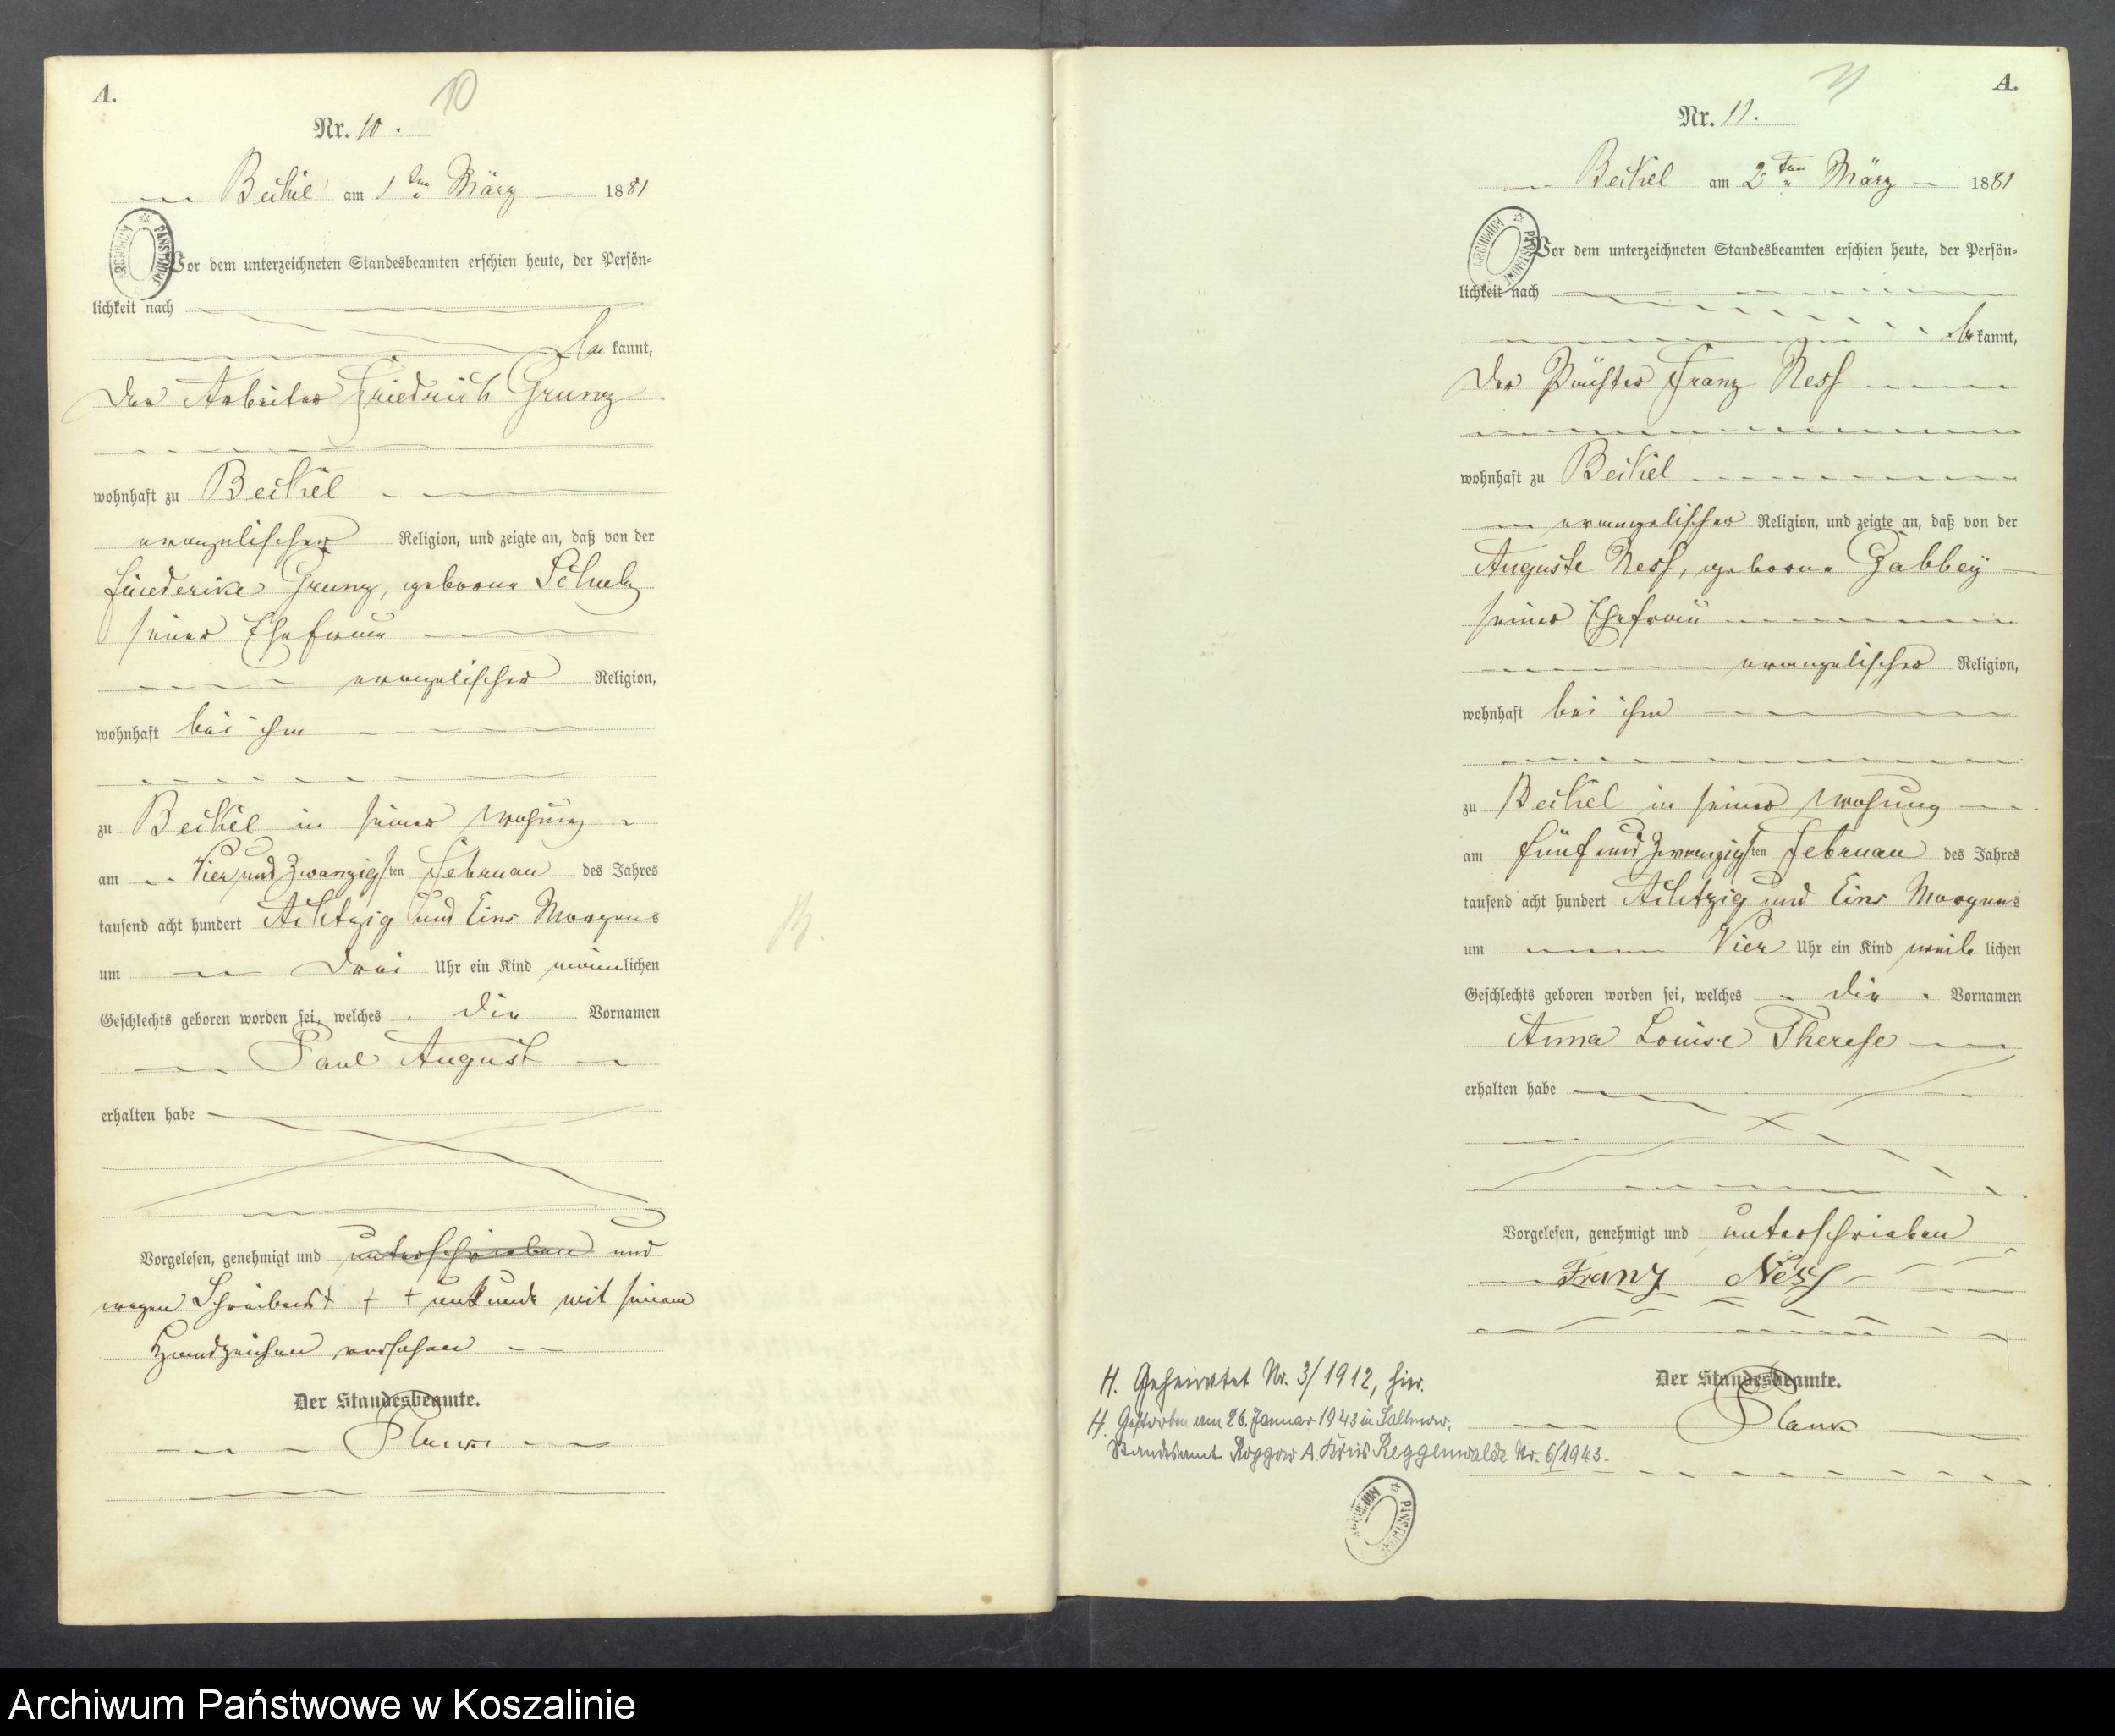 A.
10
Nr. 10.
Beikel am 1ten März 1881
Vor dem unterzeichneten Standesbeamten erschien heute, der Persön-
lichkeit nach
be kannt,
der Arbeiter Friedrich Grunz
wohnhaft zu Beikel
evangelischer Religion, und zeigte an, daß von der
Friederike Grunz, geborne Schulz
seiner Ehefrau
evangelischer Religion,
wohnhaft bei ihm
zu Beikel in seiner Wohnung
am Vier und Zwanzigsten Februar des Jahres
tausend acht hundert Achtzig und Eins Morgens
um drei Uhr ein Kind männlichen
Geschlechts geboren worden sei, welches die Vornamen
Paul August
erhalten habe
Vorgelesen, genehmigt und unterschrieben und
wegen Schreibens + + + unkunde mit seinem
Handzeichen versehen
Der Standesbeamte.
Plank
A.
11
Nr. 11.
Beikel am 2ten März 1881
Vor dem unterzeichneten Standesbeamten erschien heute, der Persön-
lichkeit nach
be kannt,
der Pächter Franz Ness
wohnhaft zu Beikel
evangelischer Religion, und zeigte an, daß von der
Auguste Ness, geborne Gabbey
seiner Ehefrau
evangelischer Religion,
wohnhaft bei ihm
zu Beikel in seiner Wohung
am fünf und Zwanzigsten Februar des Jahres
tausend acht hundert Achtzig und Eins Morgens
um Vier Uhr ein Kind weib lichen
Geschlechts geboren worden sei, welches die Vornamen
Anna Louise Therese
erhalten habe
Vorgelesen, genehmigt und unterschrieben
Franz Ness
Der Standesbeamte.
Plank
H. Geheiratet Nr. 3/1912, hier.
H. Gestorben am 26. Januar 1943 in Sallmow,
Standesamt Roggow A. Kreis Reggenwalde Nr. 6/1943.
ARCHIWUM PAŃSTWOWE
Archiwum Państwowe w Koszalinie